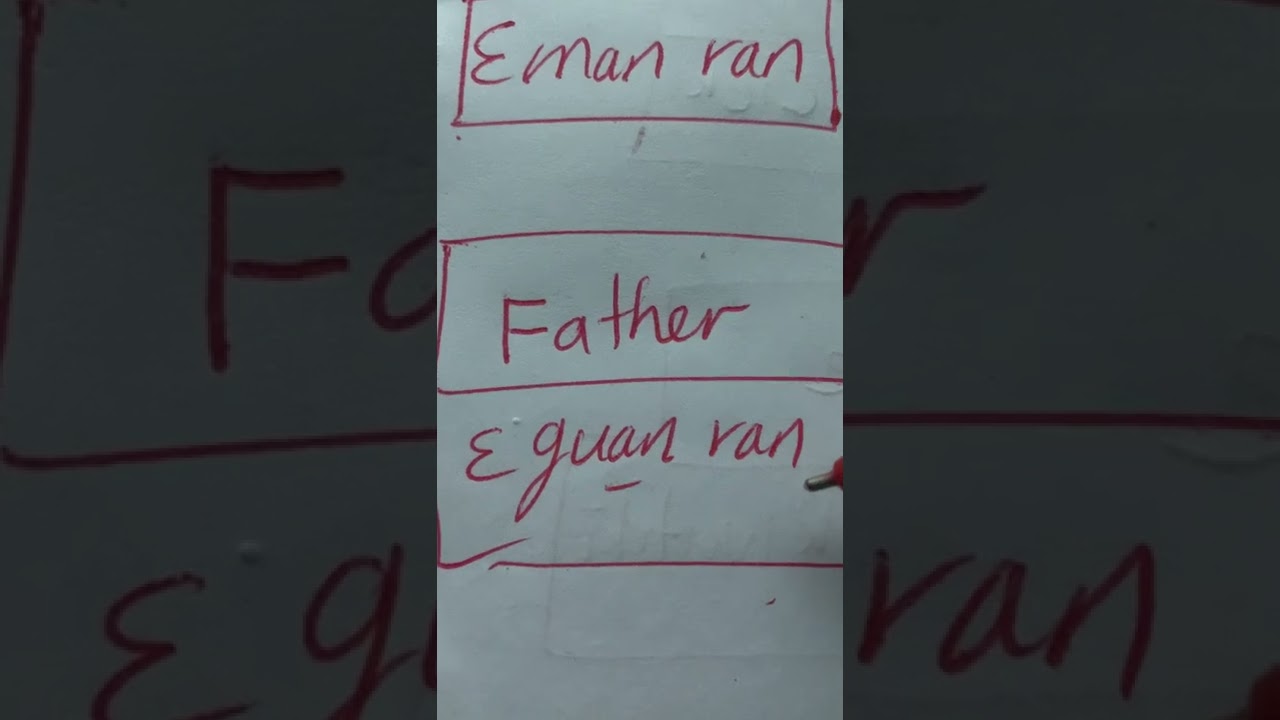 Ɛman ran
Father
Ɛ guan ran